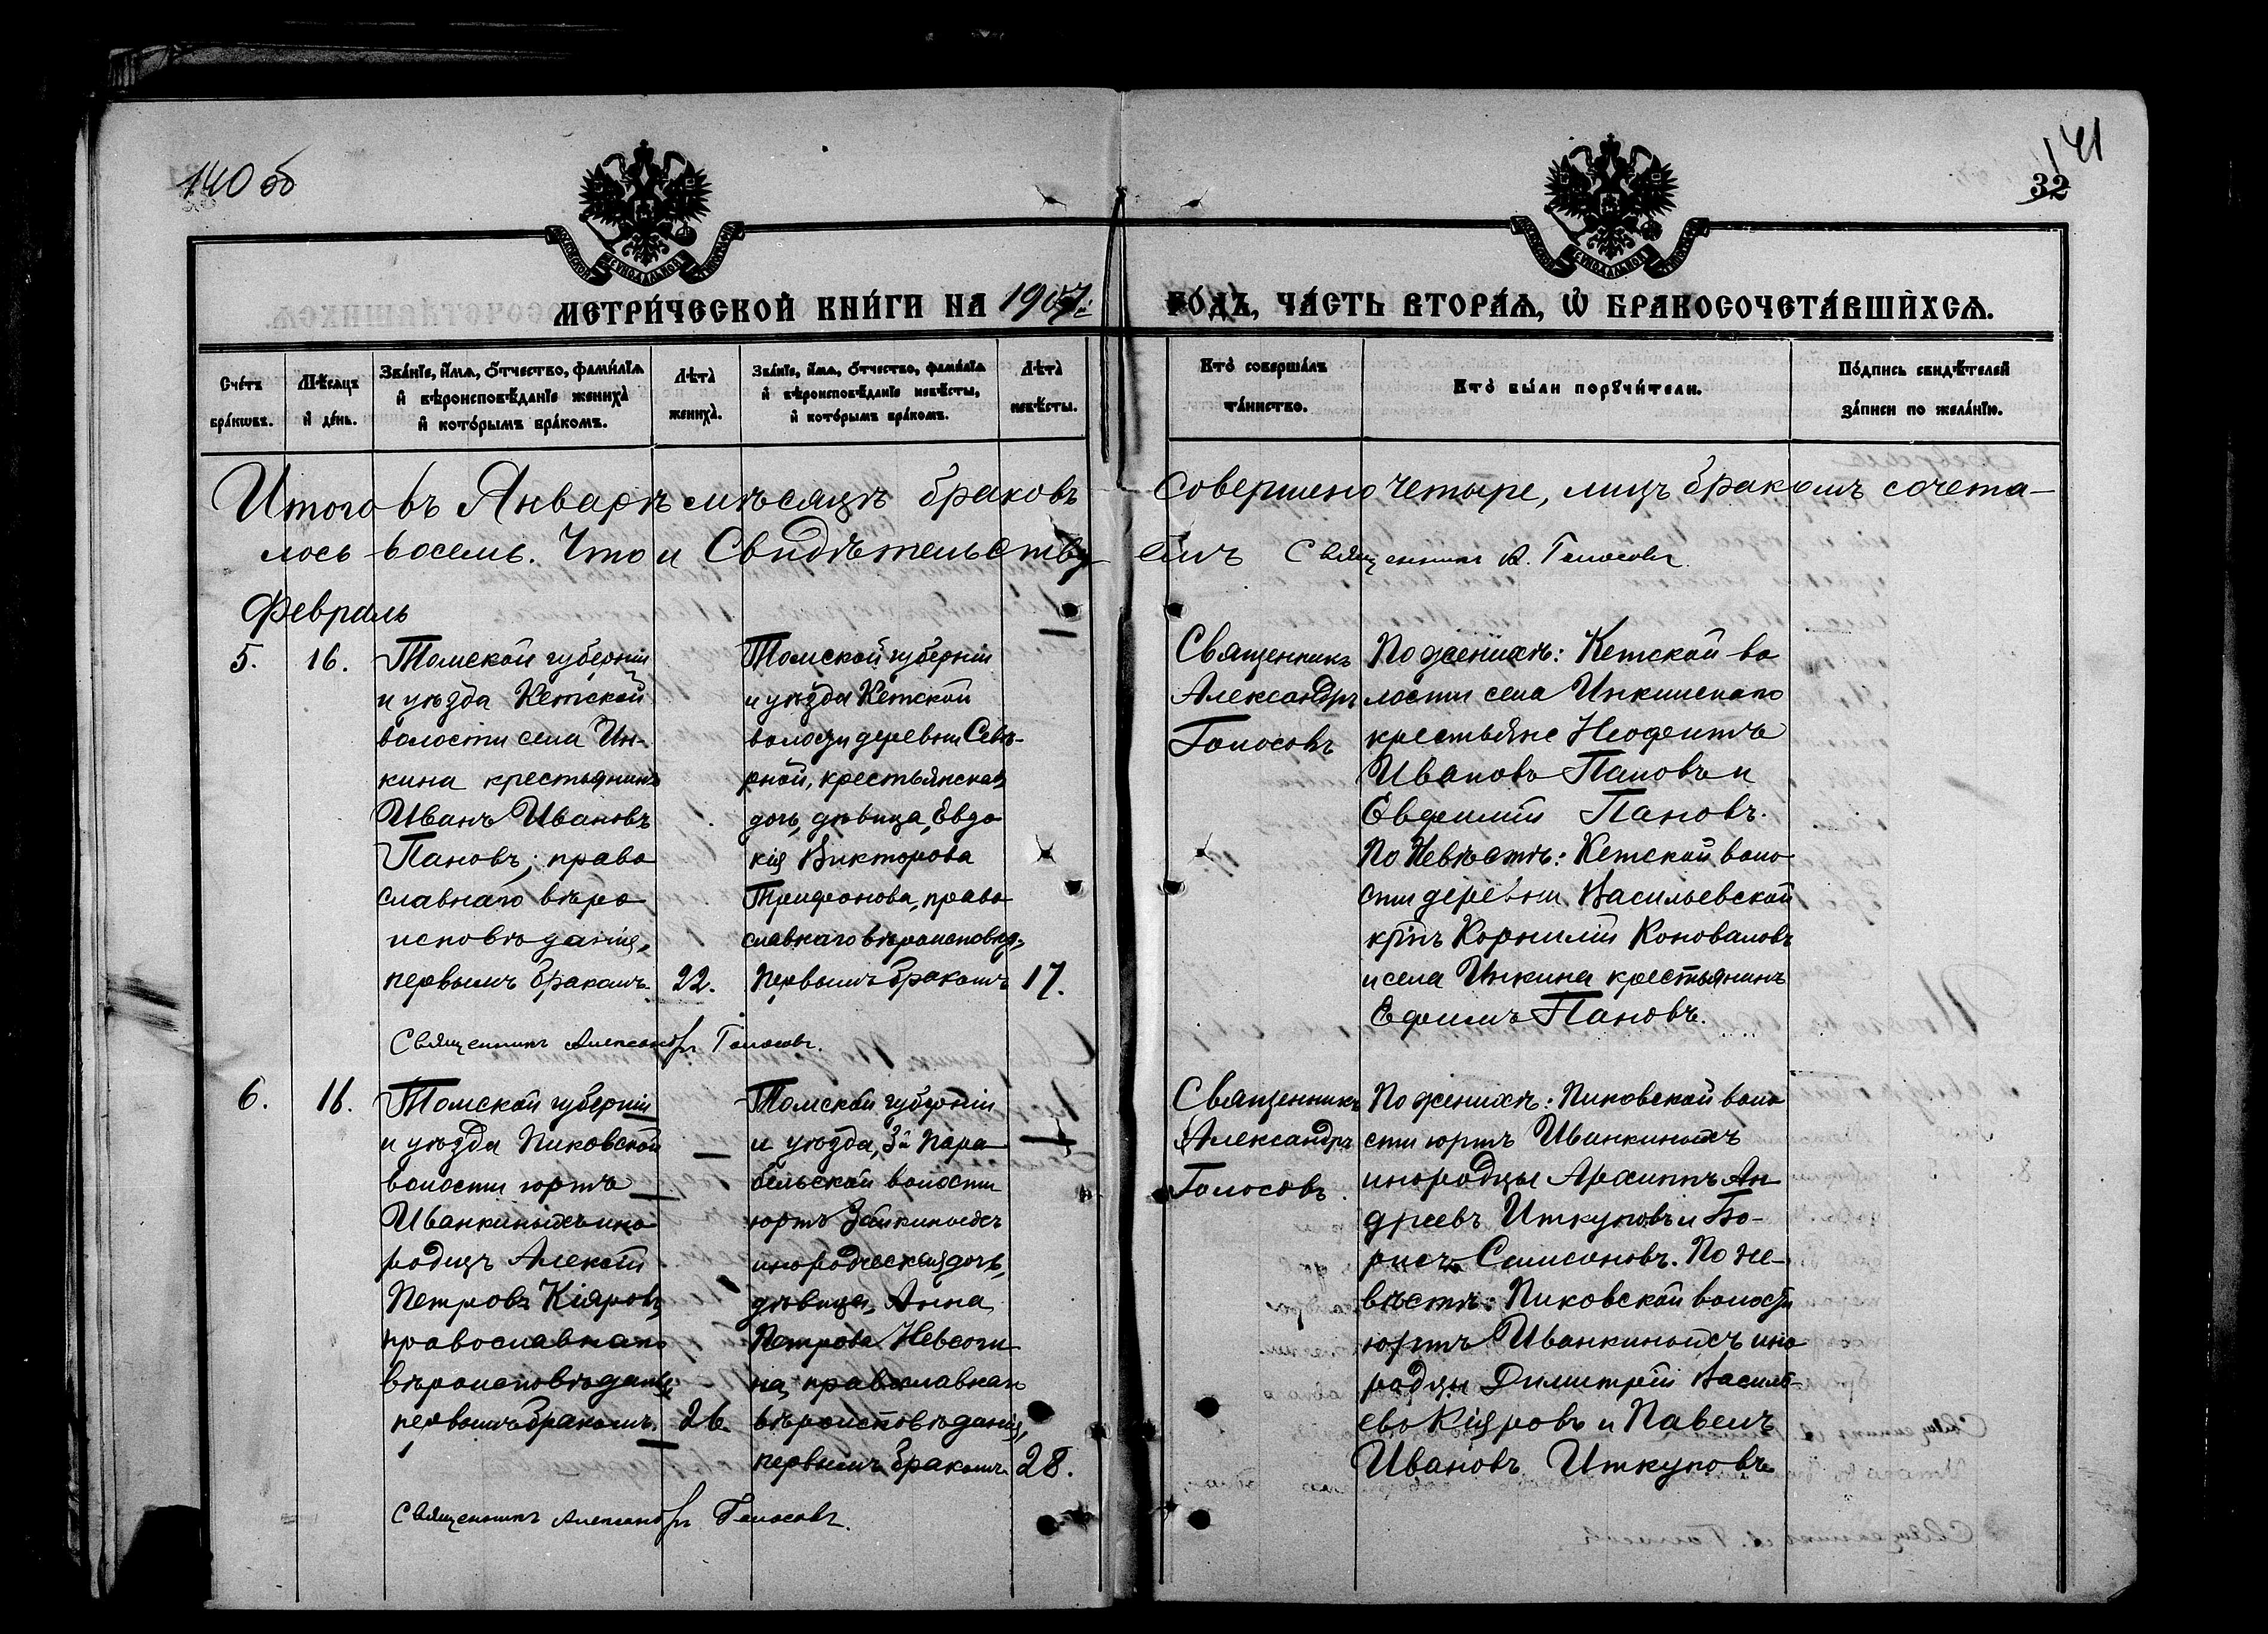 140 об
141
32
МЕТРИ́ЧЕСКОЙ КНИ́ГИ НА 1907 ГО́ДЪ, ЧА́СТЬ ВТОРА́Ѧ, Ѡ҆ БРАКОСОЧЕТА́ВШИХСѦ.
Сче́тъ бра́кѡвъ.
Мѣ́сѧцъ и҆ де́нь.
Зва́нїе, и҆́мѧ, ѻ҆́тчество, фами́лїѧ и҆ вѣроисповѣ́данїе жениха̀ и҆ кото́рымъ бра́комъ.
Лѣта̀ жениха̀.
Зва́нїе, и҆́мѧ, ѻ҆́тчество, фами́лїѧ и҆ вѣроисповѣ́данїе невѣ́сты, и҆ кото́рымъ бра́комъ.
Лѣта̀ невѣ́сты.
Кто̀ соверша́лъ та́инство.
Кто̀ бы́ли порꙋчи́тели.
По́дпись свидѣ́телей за́писи по жела́нїю.
Итого въ Январѣ мѣсяцѣ браковъ совершено четыре, лицъ бракомъ сочета-
лось восемь. Что и Свидѣтельствуемъ Священникъ А. Голосовъ
Февраль
5.
16.
Томской губерніи
и уѣзда Кетской
волости села Ин-
кина крестьянинъ
Иванъ Ивановъ
Пановъ, право
славнаго вѣро
исповѣданія,
первымъ бракомъ.
22.
Томской губерніи
и уѣзда Кетской
волости деревни Сѣве-
рной, крестьянская
дочь, дѣвица, Евдо
кія Викторова
Трифонова, право
славнаго вѣроисповѣд.
первымъ бракомъ
17.
Священникъ
Александръ
Голосовъ
По женихѣ: Кетской во
лости села Инкинскаго
крестьяне Неофитъ
Ивановъ Пановъ и
Евфимій Пановъ.
По Невѣстѣ: Кетской воло
сти деревни Васильевской
крнъ Корнилій Коноваловъ
и села Инкина крестьянинъ
Ефимъ Пановъ.
Священникъ Александръ Голосовъ.
6.
16.
Томской губерніи
и уѣзда Пиковской
волости юртъ
Иванкиныхъ ино
родецъ Алексѣй
Петровъ Кіяровъ,
православнаго
вѣроисповѣданія
первымъ бракомъ.
26.
Томской губерніи
и уѣзда, 3й Пара
бельской волости
юртъ Зайкиныхъ
инородческая дочь,
дѣвица, Анна
Петрова Невсоги
на, православнаго
вѣроисповѣданія,
первымъ бракомъ
28.
Священникъ
Александръ
Голосовъ.
По женихѣ: Пиковской воло
сти юртъ Иванкиныхъ
инородцы Архиппъ Ан
дреевъ Иткуповъ и Бо-
рисъ Самсоновъ. По не-
вѣстѣ: Пиковской волости
юртъ Иванкиныхъ ино
родцы Димитрій Василь-
евъ Кіяровъ и Павелъ
Ивановъ Иткуповъ
Священникъ Александръ Голосовъ.